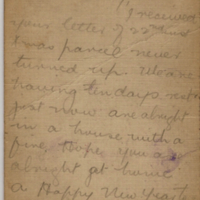 I received
your letter of 22nd inst
Xmas parcel never
turned up. We are
having ten days rest
just now are alright
in a house with a
fire, hope you are
alright at home
a Happy New Year to